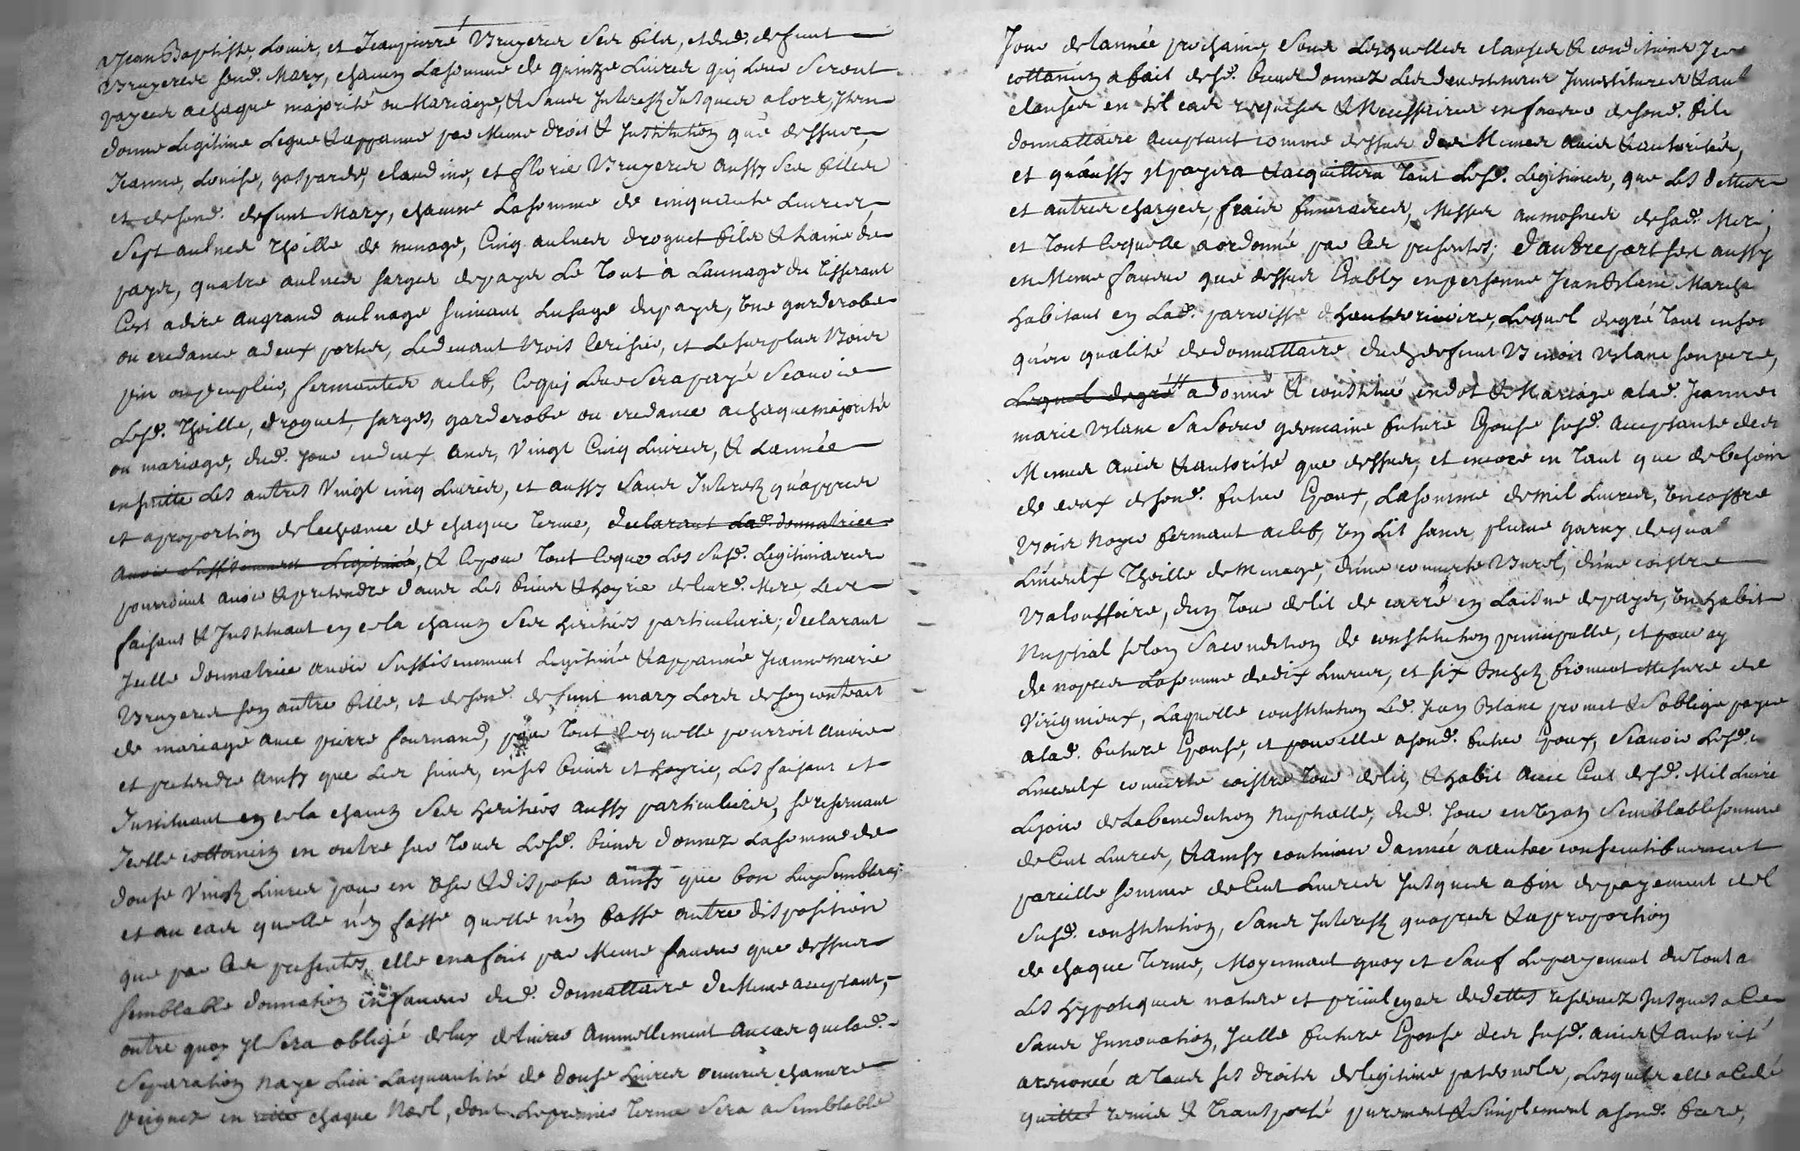 Jean Baptiste, Louis, et Jean pierre Bruyeres Ses fils, et dud. defunt
Bruyeres sond. Mary, chacun La somme de quinze Livres qui Leur Seront
payees a chaque majorité ou Mariage, & Sans Interest Jusques alors, Item
donne Legitime Legue & appanne par Meme droit & Institution que dessus,
Jeanne, Louise, gasparde, claudine, et florie Bruyeres aussy Ses filles
et desond. defunt Mary, chacune La somme de cinquante Livres,
Sept aulnes Thoille de menage, Cinq aulnes droguet fils & Laine du
payis, quatre aulnes sarges depayis Le Tout à Launage du Tisserant
Cest adire augrand aulnage suivant Lusage depayis, Une garderobe
ou credance adeux portes, Ledevant Bois Cerisier, et Lesurplus Bois
pin ou peuplier, fermantes aclef, Ce qui Leur Sera payé Scavoir
Lesd. Thoille, droguet, sarges, garderobe ou credance a chaque majorité
ou mariage, dud. jour en deux ans, Vingt Cinq Livres, & Lannée
ensuitte Les autres Vingt cinq Livres, et aussy Sans Interest qu'appres
et aproportion delecheance de chaque Terme, declarant Lad. donnatrice
avoir Suffisamment Legitimé, & Ce pour Tout Ceque Les Susd. Legitimaires
pourroient avoir & pretendre dans Les biens & hoyrie deleurd. Mere, Les
faisant & Instituant en cela chacun Ses heritiers particuliers; declarant
Jcelle donnatrice avoir Suffisemment Legitimé & appanné Jeanne Marie
Bruyeres son autre fille, et desond. defunt mary Lors deson contrait
de mariage avec pierre fournand, pour Tout Cequelle pourroit avoir
et pretendre ainsy que Les siens, enses biens et hoyrie, Les faisant et
Instituant en cela chacun Ses heritiers aussy particuliers, se reservant
Jcelle en outre sur Tous Lesd. biens donnez La somme de
douse Vingt Livres pour en User & disposer ainsy que bon Luy Semblera;
et au cas quelle n'en fasse quelle n'en fasse autre disposition
que par Ces presentes, elle en a fait par Meme faveur que dessus
semblable donnation en faveur dud. donnattaire de Meme acceptant,
outre quoy Jl Sera obligé deluy delivrer annuellement aucas quelad.
Separation Naye Lieu Laquantité de douse Livres chanvre
peignez en chaque Noel, dont Lepremier Terme Sera a Semblable
Jour delannée prochaine Sous Lesquelles clauses & conditions Jcelle
a fait desd. biens donnez Les devestiture Investiture & aut
clauses en tel cas requises & Necessaires en faveur desond. fils
donnattaire acceptant comme dessus des Memes avis & autorités,
et qu'aussy Jl payera & acquittera Tout Lesd. Legitimes, que Les dettes
et autres charges, frais funeraires, Messes aumosnes desad. Mere,
et Tout Cequelle a ordonné par Ces presentes; d'autre part sest aussy
en Meme faveur que dessus Etably en personne Jean Blanc Marcha
habitant en Lad. parroisse d, Lequel degré Tant ensoy
qu'en qualité dedonnattaire dud. defunt Benoit Blanc son pere,
Lequel degré a donné & constitué en dot & Mariage alad. Jeanne
marie Blanc Sa Soeur germaine future Epouse susd. acceptante des
Memes avis & autorité que dessus, et encore en Tant que debesoin
de ceux desond. futur Epoux, La somme demil Livres, Un coffre
Bois Noyer fermant aclef, Un Lit sans plume garny dequa
Linceulx Thoille de Menage, d'une couverte Burel, d'une coistre
Balouffiere, d'un Tour delit de carré en Laisne depayis, Un habit
Nuptial selon Sa condition de constitution principalle, et pour
de noyces La somme dedix Livres, et six froment Mesure de
Virignieux, Laquelle constitution Led. Jean Blanc promet & Soblige payer
alad. future Epouse, et pour elle asond. futur Epoux, Scavoir Lesd.
Linceulx couverte coistre Tour delit, & habit avec Cent desd. Mil Livres
Lejour de La benediction Nuptialle, dud. jour en Un an Semblable somme
de Cent Livres, & ainsy continuer d'année a autre consecutivement
pareille somme de Cent Livres Jusques afin depayement de
Susd. constitution, Sans Interest quapres & aproportion
de chaque Terme, Moyennant quoy et Sauf Lepayement du Tout a
Les hypoteques nature et privileges dedettes reservez Jusques a Ce
Sans Innovation, Jcelle future Epouse des susd. avis & autorité
a renoncé a Tous ses droits delegitime paternele, Lesquels elle a Cedé
quitté remis & Transporté purement & Simplement asond. frere,